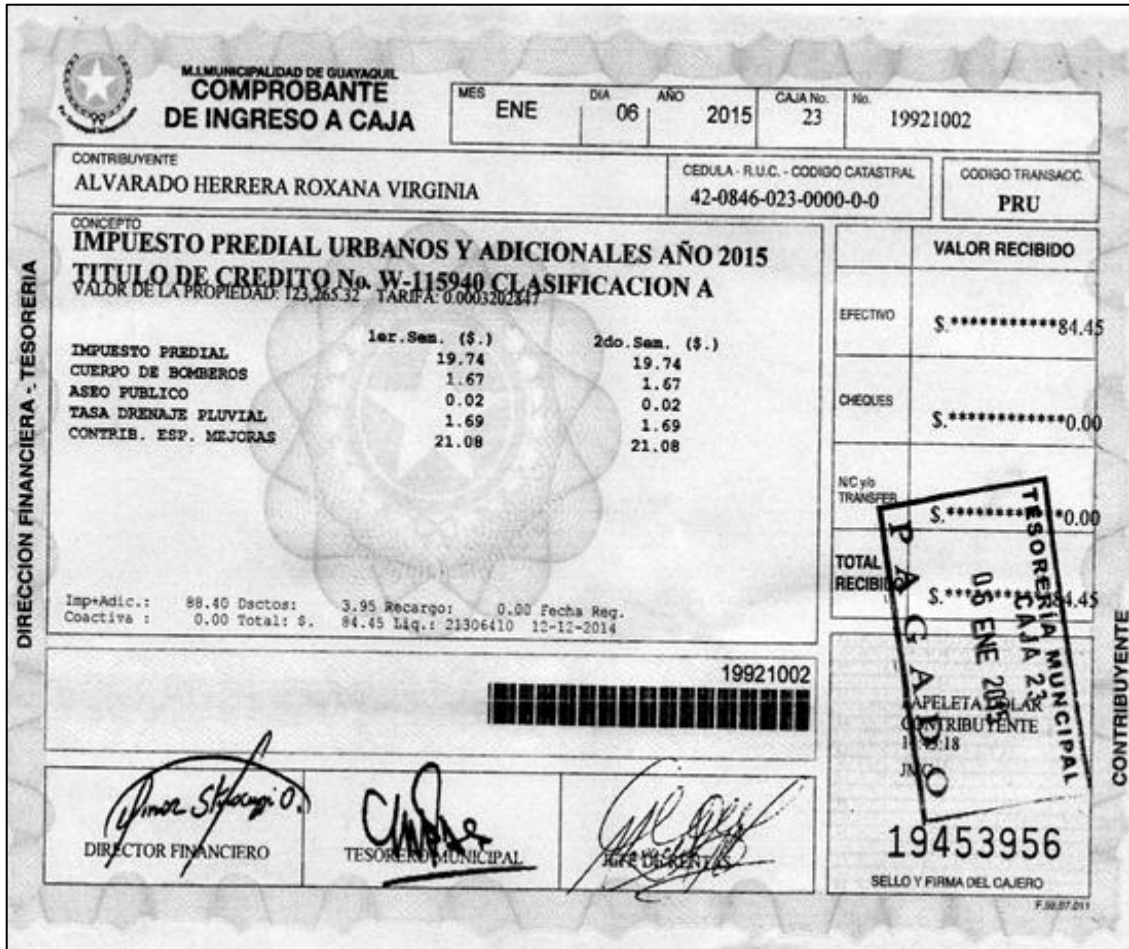 M.I.MUNICIPALIDAD DE GUAYAQUIL
COMPROBANTE
DE INGRESO A CAJA
MES ENE DIA 06 AÑO 2015 CAJA No. 23 No. 19921002
CONTRIBUYENTE
ALVARADO HERRERA ROXANA VIRGINIA
CEDULA - R.U.C. - CODIGO CATASTRAL
42-0846-023-0000-0-0
CODIGO TRANSACC.
PRU
CONCEPTO
IMPUESTO PREDIAL URBANOS Y ADICIONALES AÑO 2015
TITULO DE CREDITO No. W-115940 CLASIFICACION A
VALOR DE LA PROPIEDAD: 123,265.32 TARIFA: 0.0003202847
1er.Sem. ($.) 2do.Sem. ($.)
IMPUESTO PREDIAL 19.74 19.74
CUERPO DE BOMBEROS 1.67 1.67
ASEO PUBLICO 0.02 0.02
TASA DRENAJE PLUVIAL 1.69 1.69
CONTRIB. ESP. MEJORAS 21.08 21.08
Imp+Adic.: 88.40 Dsctos: 3.95 Recargo: 0.00 Fecha Reg.
Coactiva : 0.00 Total: $. 84.45 Liq.: 21306410 12-12-2014
VALOR RECIBIDO
EFECTIVO $.************84.45
CHEQUES $.*************0.00
N/C y/o
TRANSFER. $.*************0.00
TOTAL
RECIBIDO $.************84.45
19921002
TESORERIA MUNCIPAL
CAJA 23
ENE
PAGADO
PAPELETA DOLAR
CONTRIBUYENTE
19453956
SELLO Y FIRMA DEL CAJERO
DIRECTOR FINANCIERO
TESORERO MUNICIPAL
JEFE DE RENTAS
DIRECCION FINANCIERA - TESORERIA
CONTRIBUYENTE